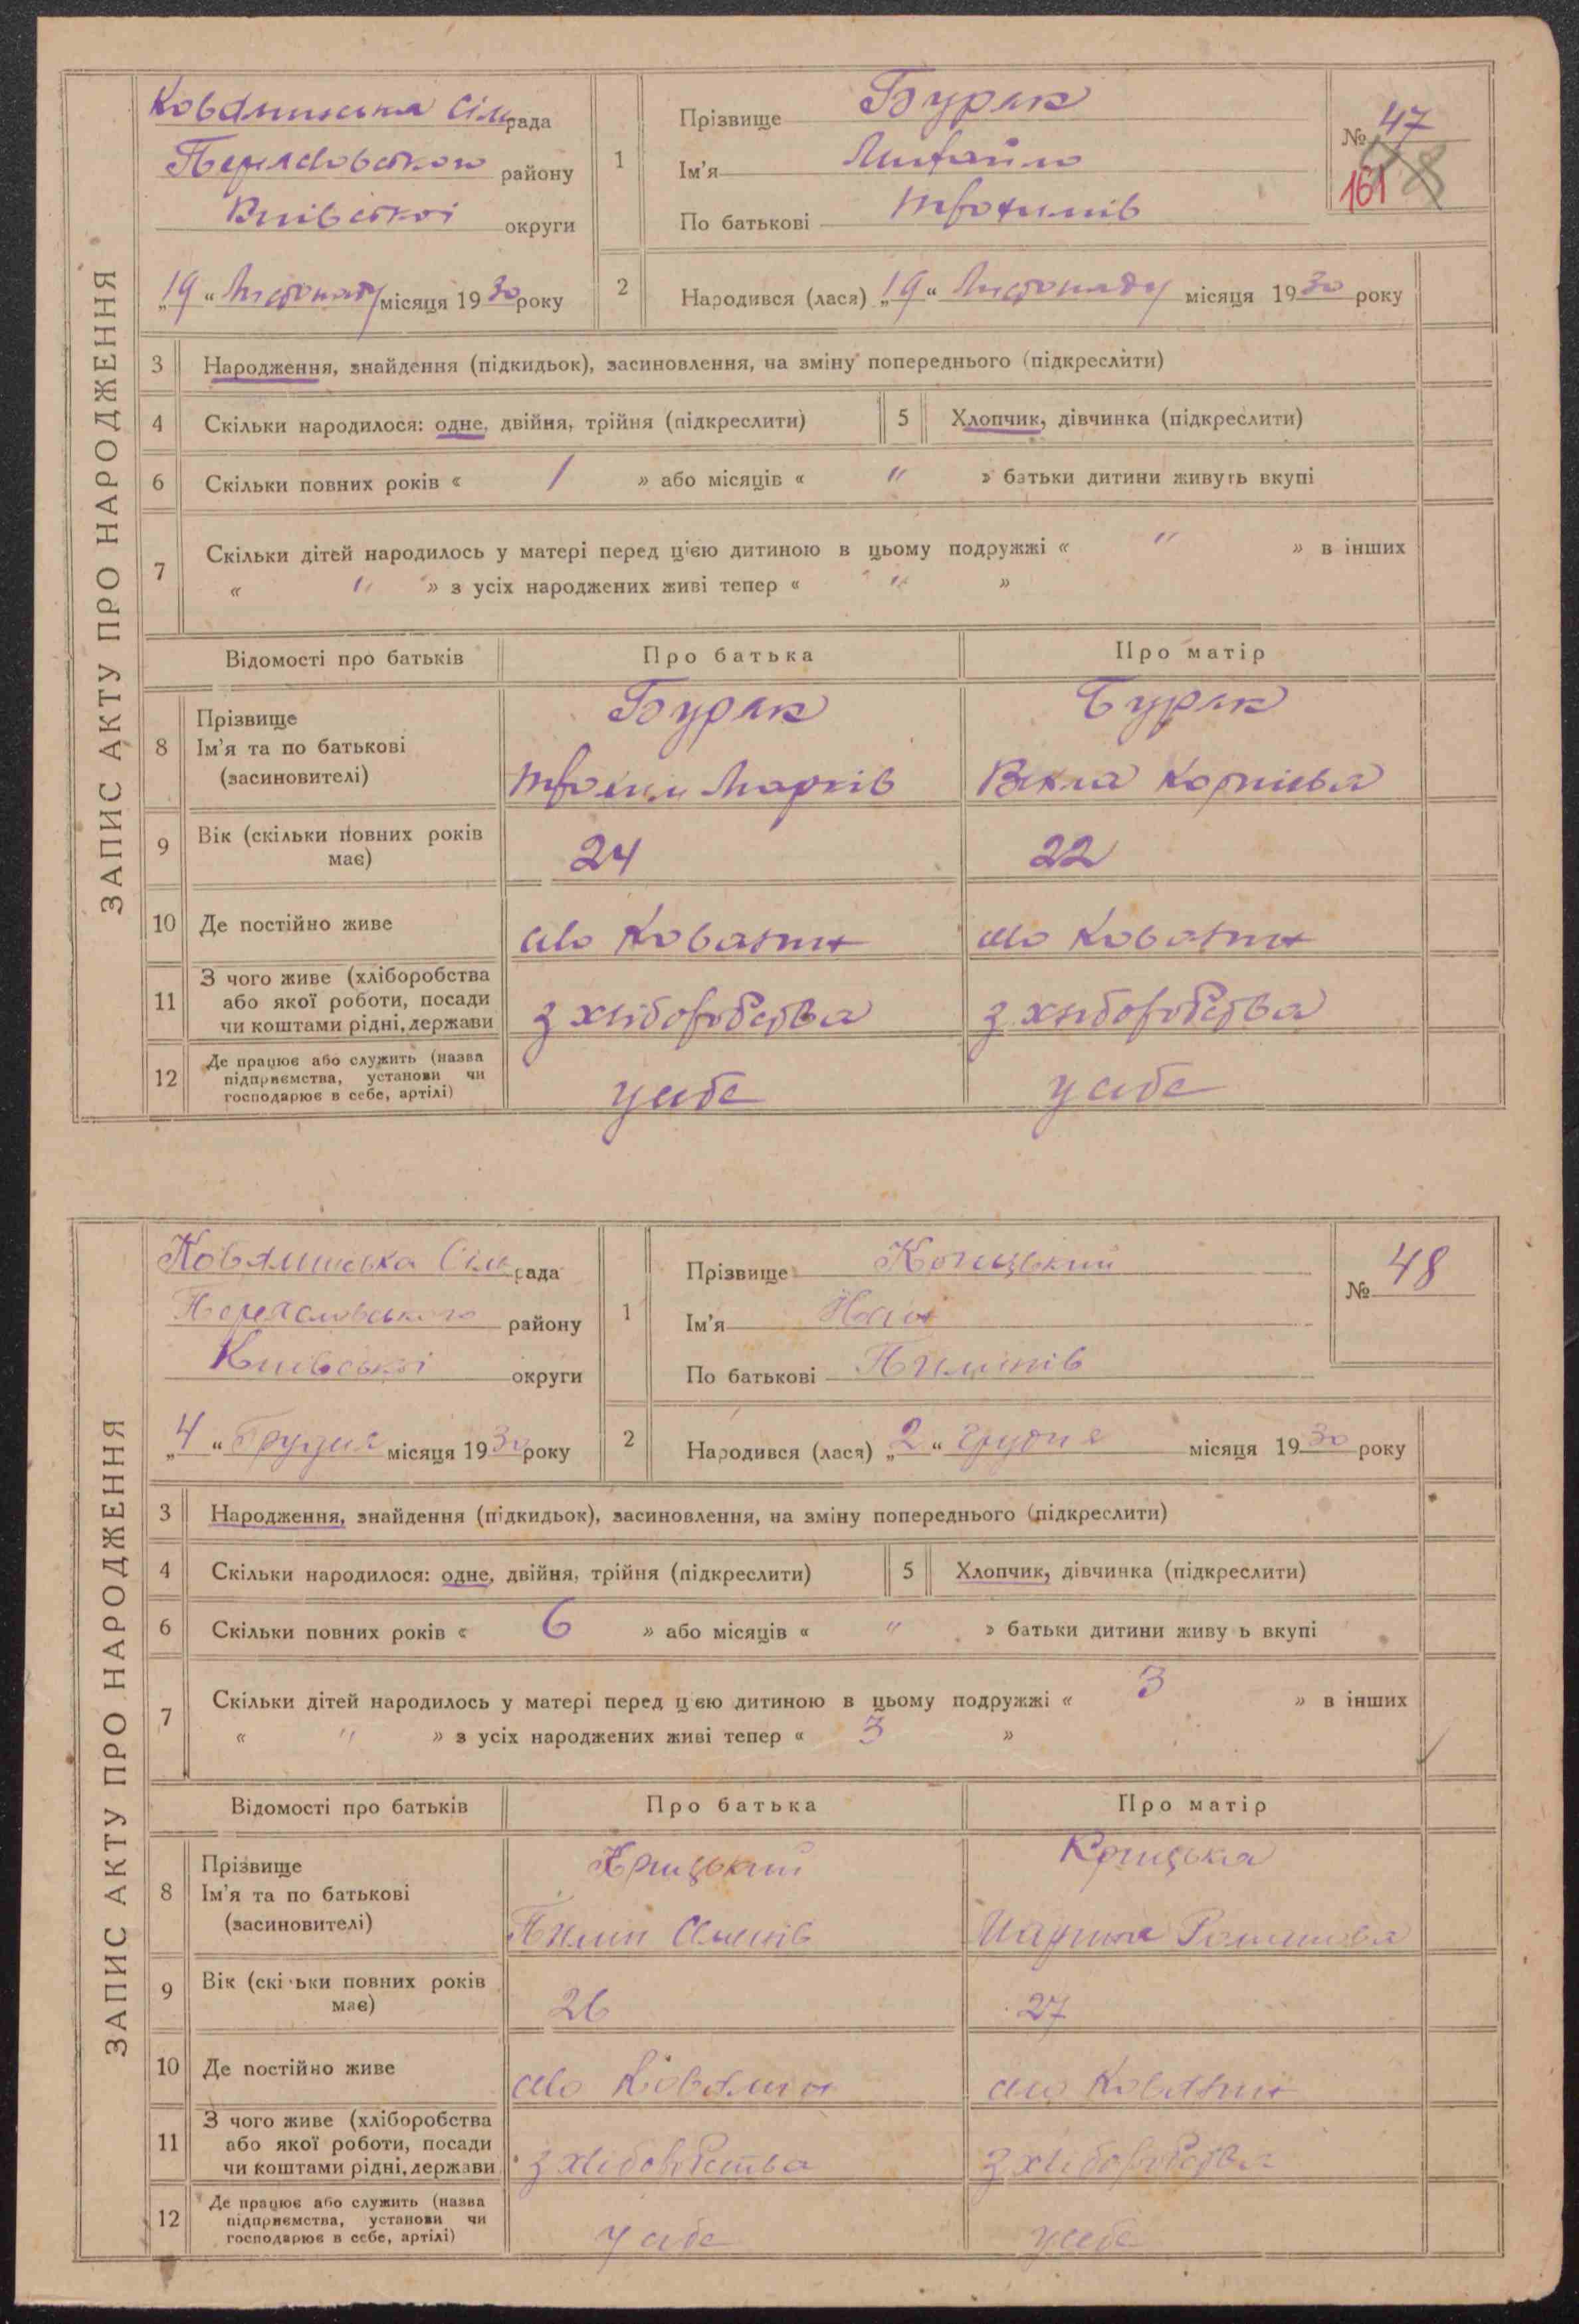 ЗАПИС АКТУ ПРО НАРОДЖЕННЯ
Ковалинська Сільрада
Переясловського району
Київської округи
„19“ Листопаду місяця 1930 року
1
Прізвище Буряк
Ім'я Михайло
По батькові Трохимів
№ 47
48
161
2
Народився (лася) „19“ Листопаду місяця 1930 року
3 Народження, знайдення (підкидьок), засиновлення, на зміну попереднього (підкреслити)
4 Скільки народилося: одне, двійня, трійня (підкреслити) 5 Хлопчик, дівчинка (підкреслити)
6 Скільки повних років « 1 » або місяців « " » батьки дитини живуть вкупі
7 Скільки дітей народилось у матері перед цією дитиною в цьому подружжі « " » в інших
« " » з усіх народжених живі тепер « " »
Відомості про батьків Про батька Про матір
8 Прізвище Буряк Буряк
Ім'я та по батькові
(засиновителі) Трохим Марків Векла Корніева
9 Вік (скільки повних років має) 24 22
10 Де постійно живе село Ковалин село Ковалин
11 З чого живе (хліборобства
або якої роботи, посади
чи коштами рідні, держави з хліборобства з хліборобства
12 Де працює або служить (назва
підприємства, установи чи
господарює в себе, артілі) у себе у себе
ЗАПИС АКТУ ПРО НАРОДЖЕННЯ
Ковалинська Сільрада
Переясловського району
Київської округи
„4“ Грудня місяця 1930 року
1
Прізвище
Ім'я
По батькові Пилипів
№ 48
2
Народився (лася) „2“ Грудня місяця 1930 року
3 Народження, знайдення (підкидьок), засиновлення, на зміну попереднього (підкреслити)
4 Скільки народилося: одне, двійня, трійня (підкреслити) 5 Хлопчик, дівчинка (підкреслити)
6 Скільки повних років « 6 » або місяців « " » батьки дитини живу ь вкупі
7 Скільки дітей народилось у матері перед ц єю дитиною в цьому подружжі « 3 » в інших
« " » з усіх народжених живі тепер « 3 »
Відомості про батьків Про батька Про матір
8 Прізвище
Ім'я та по батькові
(засиновителі) Пилип Марина Романова
9 Вік (скі ьки повних років має) 26 27
10 Де постійно живе село Ковалин село Ковалин
11 З чого живе (хліборобства
або якої роботи, посади
чи коштами рідні, держави з хліборобства з хліборобства
12 Де працює або служить (назва
підприємства, установи чи
господарює в себе, артілі) у себе у себе